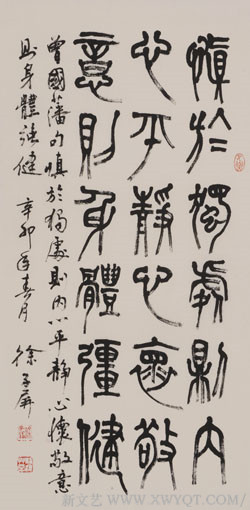 慎於獨處則内
心平靜心懷敬
意則身體彊健
曾國藩句慎於獨處則内心平靜心懷敬意
則身體強健 辛卯年春月 徐子屏
新文艺 WWW.XWYQT.COM